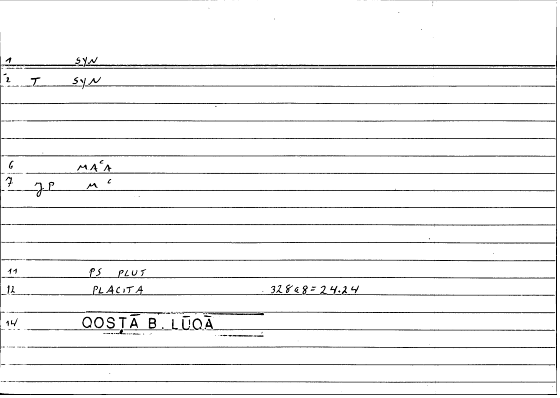 1 SYN
2 T SYN
6 MAᶜA
7 JP Mᶜ
11 PS PLUT
12 PLACITA 328a8=24.24
14 QOSṬĀ B. LŪQĀ